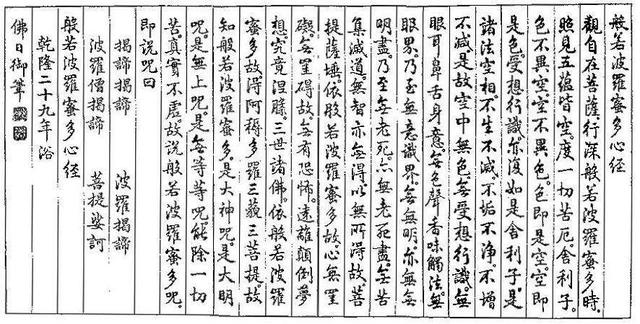 般若波羅蜜多心経
觀自在菩薩行深般若波羅蜜多時。
照見五蘊皆空。度一切苦厄。舍利子。
色不異空空不異色。色即是空。空即
是色。受想行識亦復如是舍利子。是
諸法空相。不生不滅。不垢不淨。不增
不減是故空中無色無受想行識。無
眼耳鼻舌身意。無色聲香味觸法無
眼界。乃至無意識界。無無明亦無無
明盡。乃至無老死。亦無老死盡。無苦
集滅道。無智亦無得以無所得故。菩
提薩埵。依般若波羅蜜多故。心無罣
礙。無罣礙故。無有恐怖。遠離顛倒夢
想。究竟涅槃。三世諸佛。依般若波羅
蜜多故得阿耨多羅三藐三菩提故
知般若波羅蜜多。是大神呪。是大明
呪。是無上呪。是無等等呪能除一切
苦真實不虛。故説般若波羅蜜多呪。
即説呪曰
揭諦揭諦 波羅揭諦
波羅僧揭諦 菩提娑訶
般若波羅蜜多心経
乾隆二十九年浴
佛日御筆